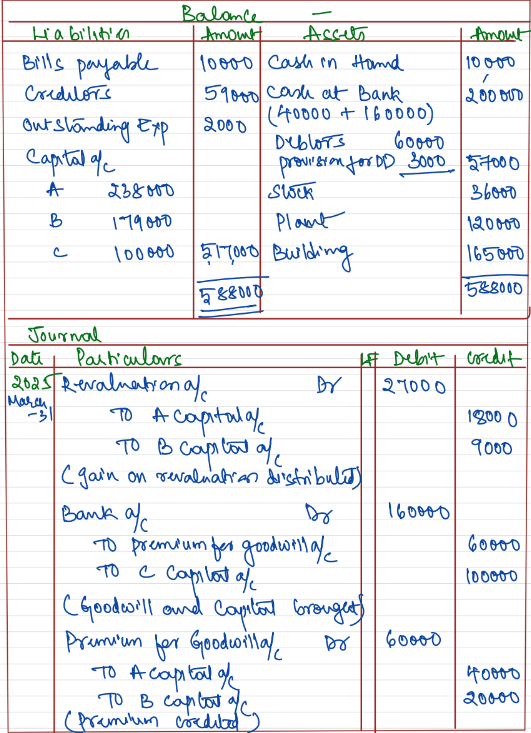 Balance —
Liabilities Amount Assets Amount
Bills payable 10000 Cash in Hand 10000
Creditors 59000 Cash at Bank 200000
(40000 + 160000)
Outstanding Exp 2000
Debtors 60000
Capital a/c provision for DD 3000 57000
A 238000 Stock 36000
B 179000 Plant 120000
C 100000 517000 Building 165000
588000 588000
Journal
Date Particulars LF Debit Credit
2025 Revaluation a/c Dr 27000
March -31 To A Capital a/c 18000
To B Capital a/c 9000
(gain on revaluation distributed)
Bank a/c Dr 160000
To Premium for goodwill a/c 60000
To C Capital a/c 100000
(Goodwill and Capital brought)
Premium for Goodwill a/c Dr 60000
To A Capital a/c 40000
To B Capital a/c 20000
(Premium credited)